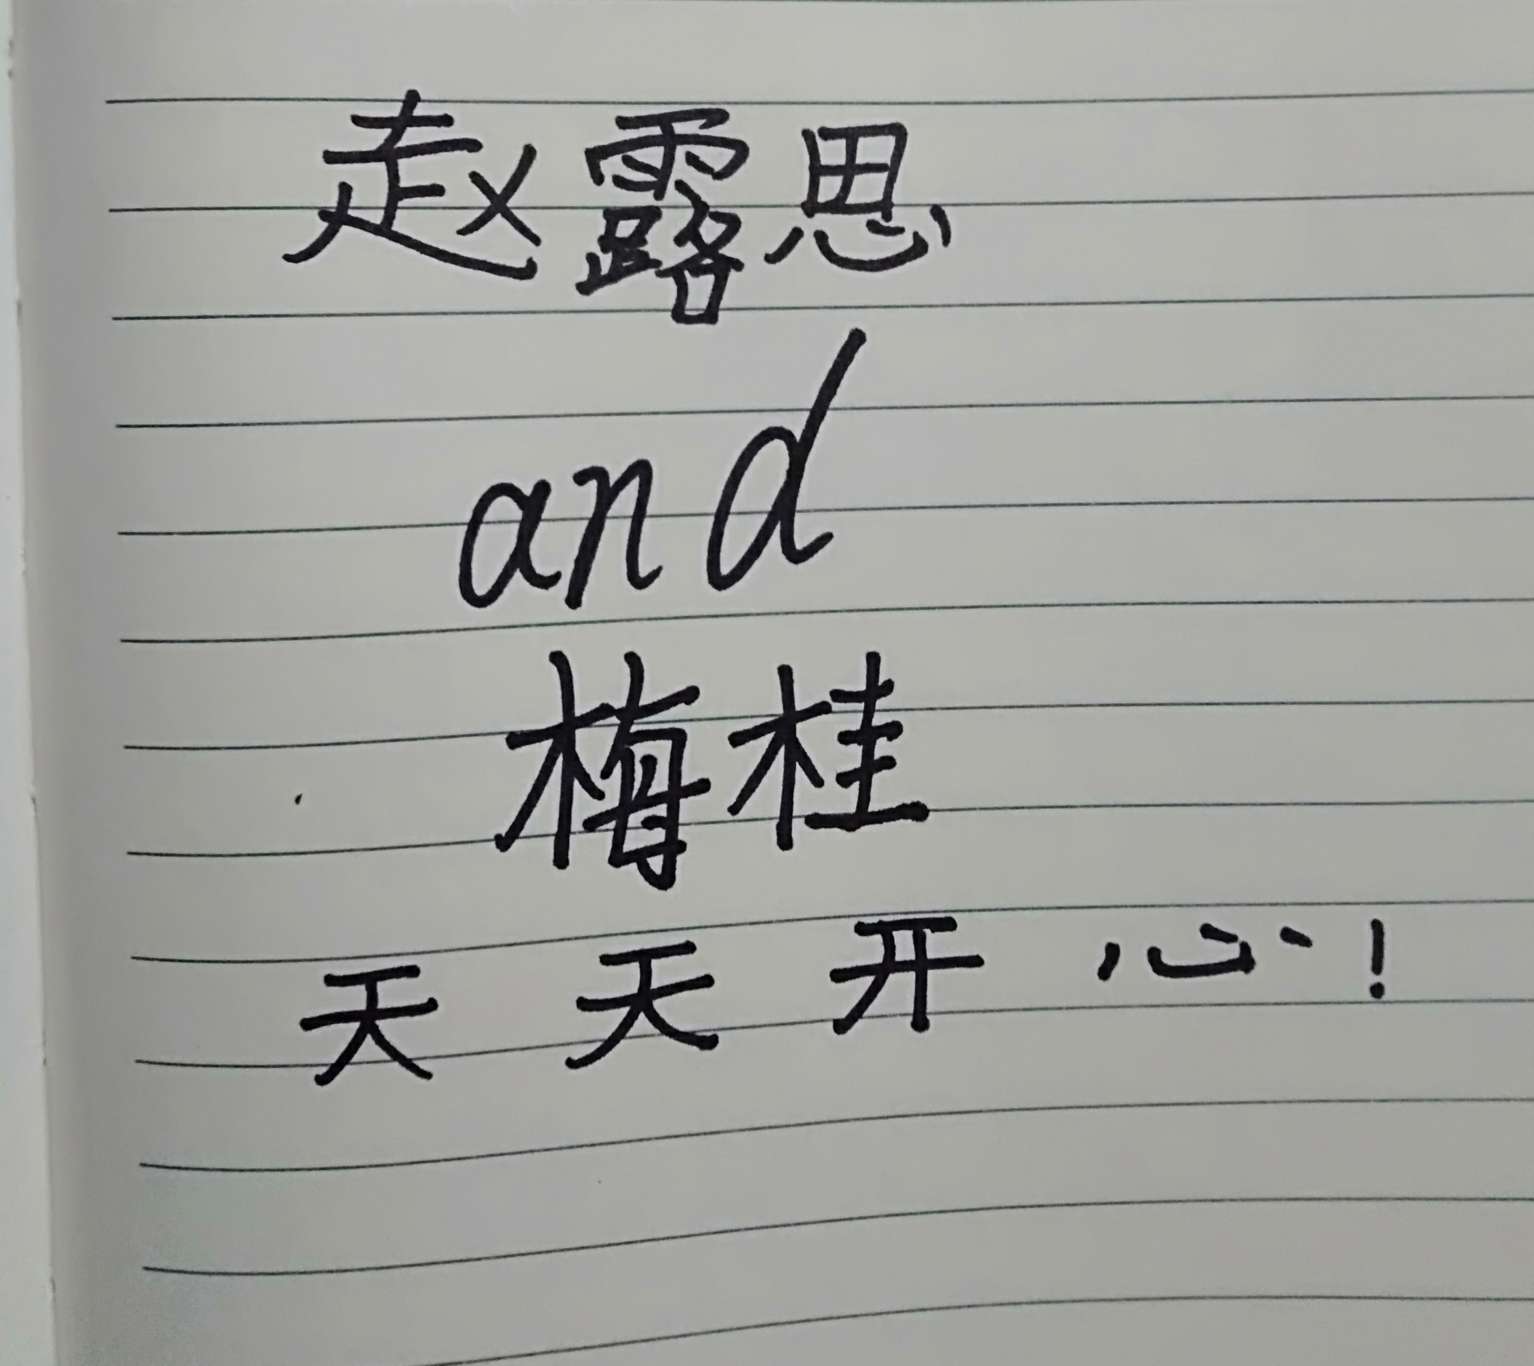 赵露思
and
梅桂
天天开心!